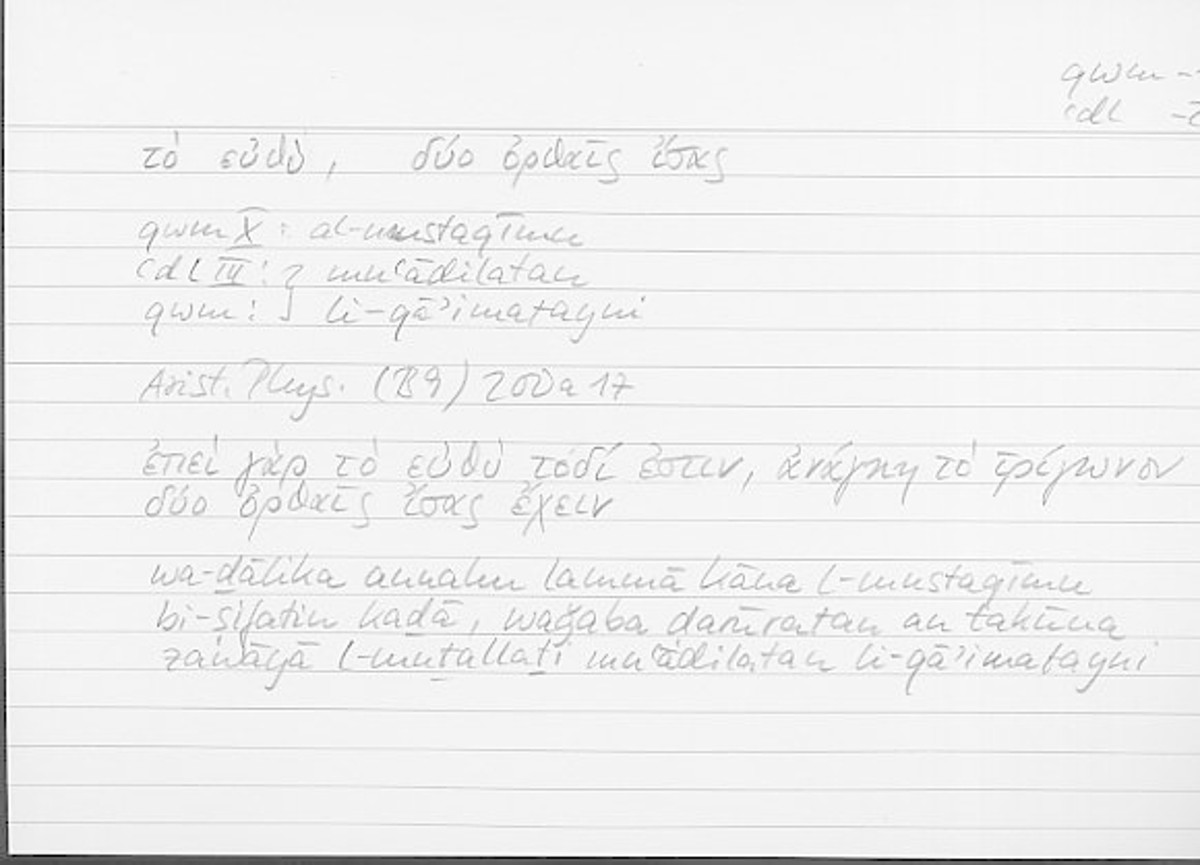 qwm -
ʿdl -
τὸ εὐθὺ, δύο ὀρθαῖς ἴσας
qwm X : al-mustaqīmu
ʿdl III : } muʿādilatan
qwm : } li-qāʾimatayni
Arist. Phys. (B9) 200a17
ἐπεὶ γὰρ τὸ εὐθὺ τοδί ἐστιν, ἀνάγκη τὸ τρίγωνον
δύο ὀρθαῖς ἴσας ἔχειν
wa-ḏālika annahu lammā kāna l-mustaqīmu
bi-ṣifatin kaḏā, waǧaba ḍarūratan an takūna
zawāyā l-muṯallaṯi muʿādilatan li-qāʾimatayni